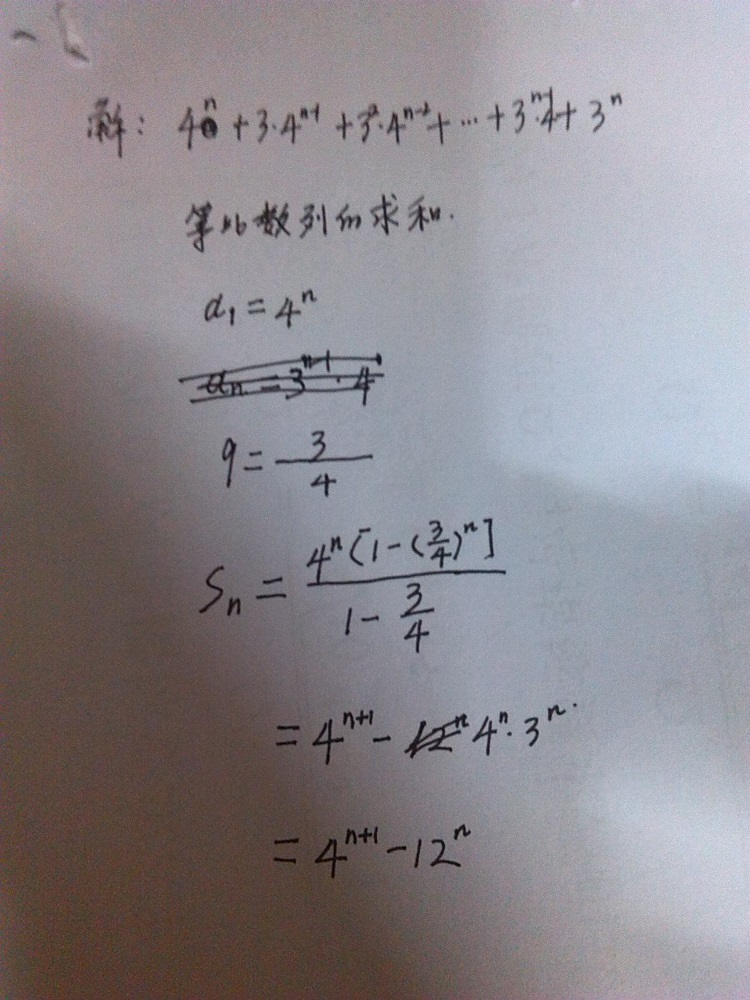 解: 4^n + 3·4^{n-1} + 3^2·4^{n-2} + ··· + 3^{n-1}·4 + 3^n
等比数列的求和.
a_1 = 4^n
a_n = 3^{n-1}·4
q = 3/4
S_n = 4^n[1-(3/4)^n] / (1 - 3/4)
= 4^{n+1} - 12^n 4^n·3^n.
= 4^{n+1} - 12^n